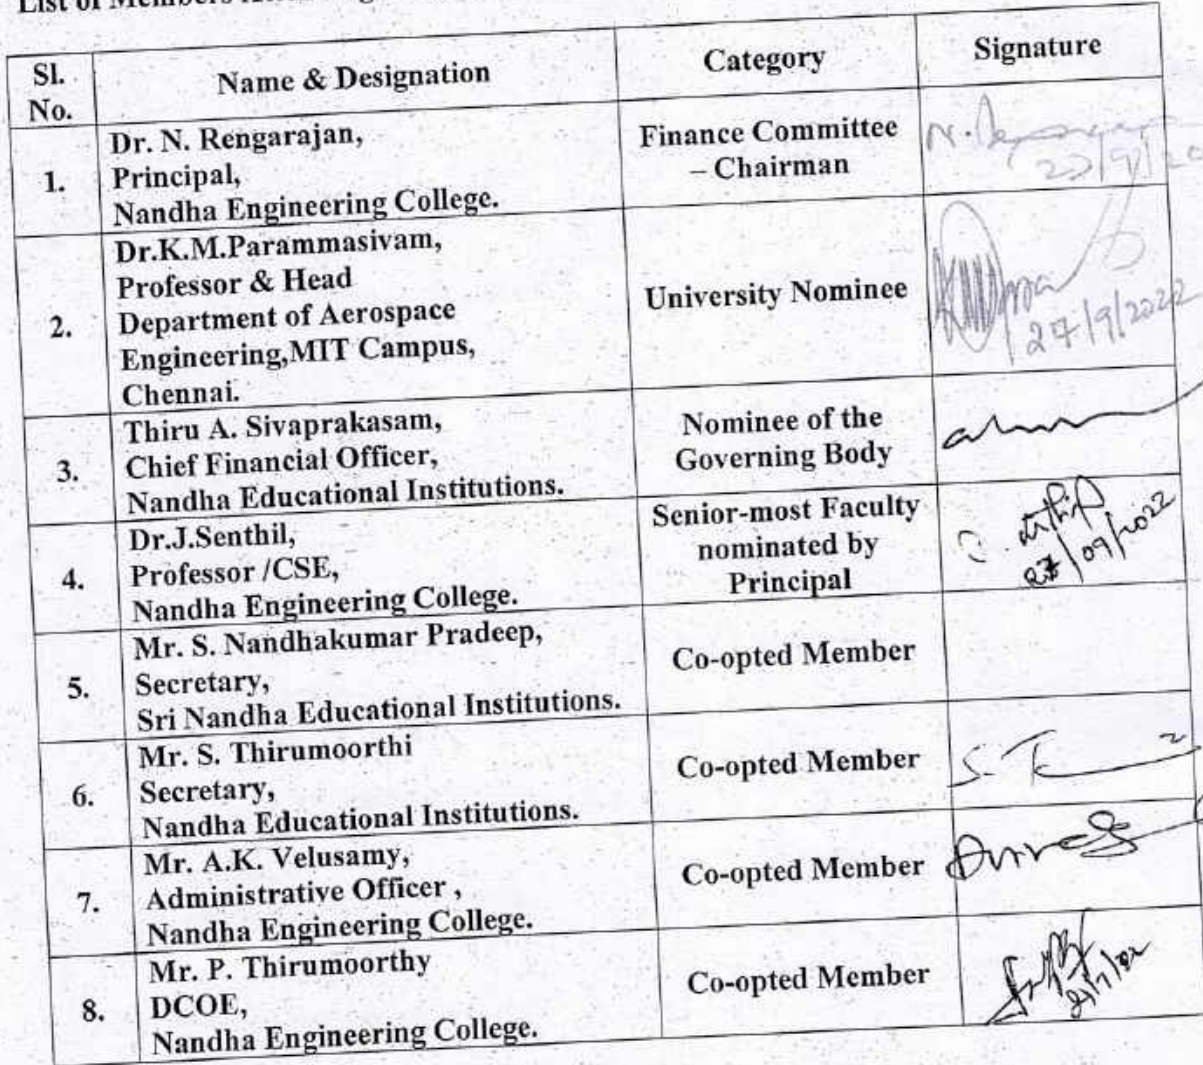 List of Members
Sl. No. Name & Designation Category Signature
1. Dr. N. Rengarajan,
Principal,
Nandha Engineering College.
Finance Committee
– Chairman
2. Dr.K.M.Parammasivam,
Professor & Head
Department of Aerospace
Engineering,MIT Campus,
Chennai.
University Nominee
27/9/2022
3. Thiru A. Sivaprakasam,
Chief Financial Officer,
Nandha Educational Institutions.
Nominee of the
Governing Body
4. Dr.J.Senthil,
Professor /CSE,
Nandha Engineering College.
Senior-most Faculty
nominated by
Principal
27/09/2022
5. Mr. S. Nandhakumar Pradeep,
Secretary,
Sri Nandha Educational Institutions.
Co-opted Member
6. Mr. S. Thirumoorthi
Secretary,
Nandha Educational Institutions.
Co-opted Member
7. Mr. A.K. Velusamy,
Administrative Officer ,
Nandha Engineering College.
Co-opted Member
8. Mr. P. Thirumoorthy
DCOE,
Nandha Engineering College.
Co-opted Member